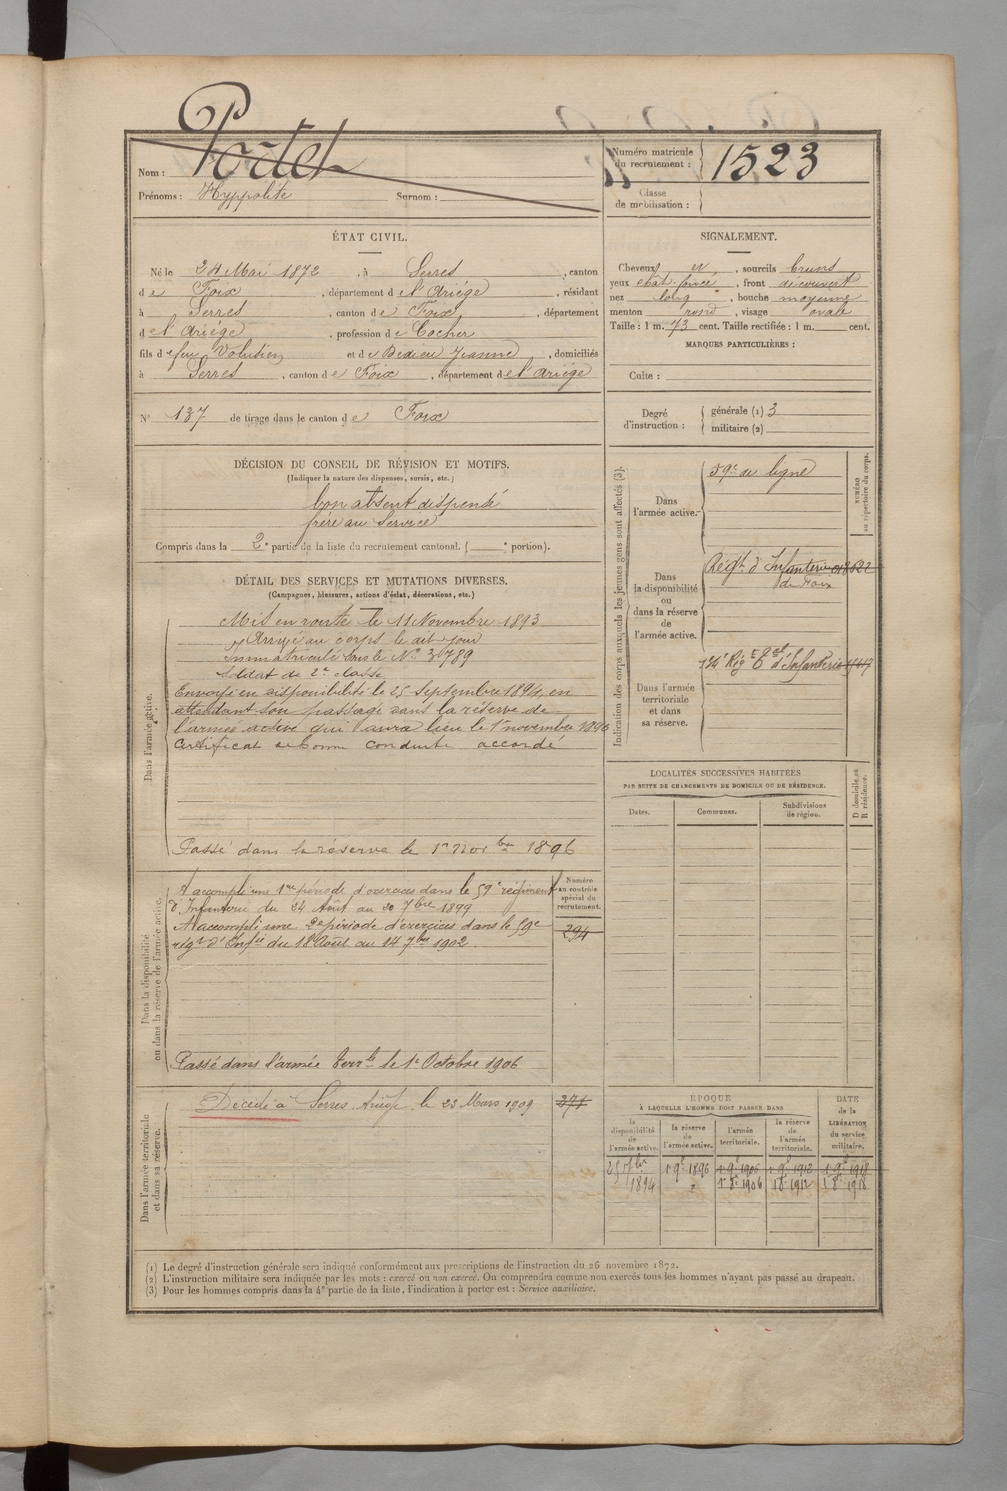 Nom : Portet
Prénoms : Hyppolite Surnom :
Numéro matricule
du recrutement : 1523
Classe
de mobilisation :
ÉTAT CIVIL.
Né le 24 Mai 1872, à Serres, canton
de Foix, département de l'Ariège, résidant
à Serres, canton de Foix, département
de l'Ariège, profession de Cocher
fils de feu Volusien et de Bédieu Jeanne, domiciliés
à Serres, canton de Foix, département de l'Ariège
N° 137 de tirage dans le canton de Foix
SIGNALEMENT.
Cheveux et, sourcils bruns
yeux chat. foncé, front découvert
nez long, bouche moyenne
menton rond, visage ovale
Taille : 1 m. 73 cent. Taille rectifiée : 1 m. cent.
MARQUES PARTICULIÈRES :
Culte :
Degré
d'instruction :
générale (1) 3
militaire (2)
DÉCISION DU CONSEIL DE RÉVISION ET MOTIFS.
(Indiquer la nature des dispenses, sursis, etc.)
bon absent dispensé
frère au service
Compris dans la 2e partie de la liste du recrutement cantonal. ( e portion).
DÉTAIL DES SERVICES ET MUTATIONS DIVERSES.
(Campagnes, blessures, actions d'éclat, décorations, etc.)
Dans l'armée active.
Mis en route le 11 Novembre 1893
Arrivé au corps le dit jour
Immatriculé sous le N° 3789
Soldat de 2e classe
Envoyé en disponibilité le 25 Septembre 1894, en
attendant son passage dans la réserve de
l'armée active qui aura lieu le 1er novembre 1896
Certificat de bonne conduite accordé
Passé dans la réserve le 1er Novbre 1896
Dans la disponibilité
ou dans la réserve de l'armée active.
A accompli une 1re période d'exercices dans le 59e régiment
d'Infanterie du 24 Août au 20 7bre 1899
A accompli une 2e période d'exercices dans le 59e
régt d'Infie du 18 Août au 14 7bre 1902
Passé dans l'armée Terrle le 1er Octobre 1906
Numéro
au contrôle
spécial du
recrutement.
294
Dans l'armée territoriale
et dans sa réserve.
Décédé à Serres, Ariège le 23 Mars 1909
271
Indication des corps auxquels les jeunes gens sont affectés (3).
Dans
l'armée active.
59e de ligne
NUMÉRO
au répertoire du corps.
Dans
la disponibilité
ou
dans la réserve
de
l'armée active.
Régt d'Infanterie
de Foix
Dans l'armée
territoriale
et dans
sa réserve.
Rég Tal d'Infanterie
LOCALITÉS SUCCESSIVES HABITÉES
PAR SUITE DE CHANGEMENTS DE DOMICILE OU DE RÉSIDENCE.
Dates.
Communes.
Subdivisions
de région.
D domicile ou
R résidence.
ÉPOQUE
À LAQUELLE L'HOMME DOIT PASSER DANS
la
disponibilité
de
l'armée active.
la réserve
de
l'armée active.
l'armée
territoriale.
la réserve
de
l'armée
territoriale.
DATE
de la
LIBÉRATION
du service
militaire.
25 7bre
1894
1er 9e 1896
1er 9e 1906
1er 9e 1912
1er 9e 1918
1er 8e 1906
1er 8e 1912
1er 8e 1918
(1) Le degré d'instruction générale sera indiqué conformément aux prescriptions de l'instruction du 26 novembre 1872.
(2) L'instruction militaire sera indiquée par les mots : exercé ou non exercé. On comprendra comme non exercés tous les hommes n'ayant pas passé au drapeau.
(3) Pour les hommes compris dans la 4e partie de la liste, l'indication à porter est : Service auxiliaire.